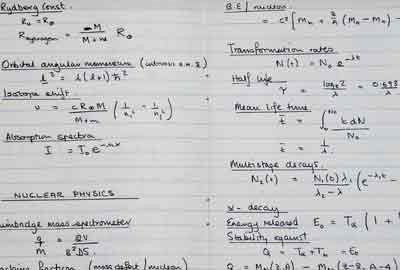 Rydberg Const.
R∞ = R∞
R_hydrogen = M / (M + m) R∞
Orbital angular momentum
l² = l(l+1) ħ²
Isotope shift.
ν = c R∞ M / (M + m) (1/n₁² − 1/n₂²)
Absorption spectra
I = I₀ e^−
NUCLEAR PHYSICS
mass spectrometer
q/M = 2V / B²DS
fraction (mass defect / nucleon)
B.E / nucleon
= c² [ Mn + (Mn − Mn) −
Transformation rates
N(t) = N₀ e^−λt
Half life
τ = loge2 / λ = 0.693 / λ
Mean life time
t̄ = ∫₀^N₀ t dN / N₀
t̄ = 1/λ
Multistage decays.
N₂(t) = N₁(0) λ₁ / (λ₂ − λ) (e^−λ₁t −
α - decay
Energy released E₀ = Tα (1 +
Stability against
Q = Tα + Tb = E₀
Q = Mn(Z,A) − Mn(Z-2, A-4)